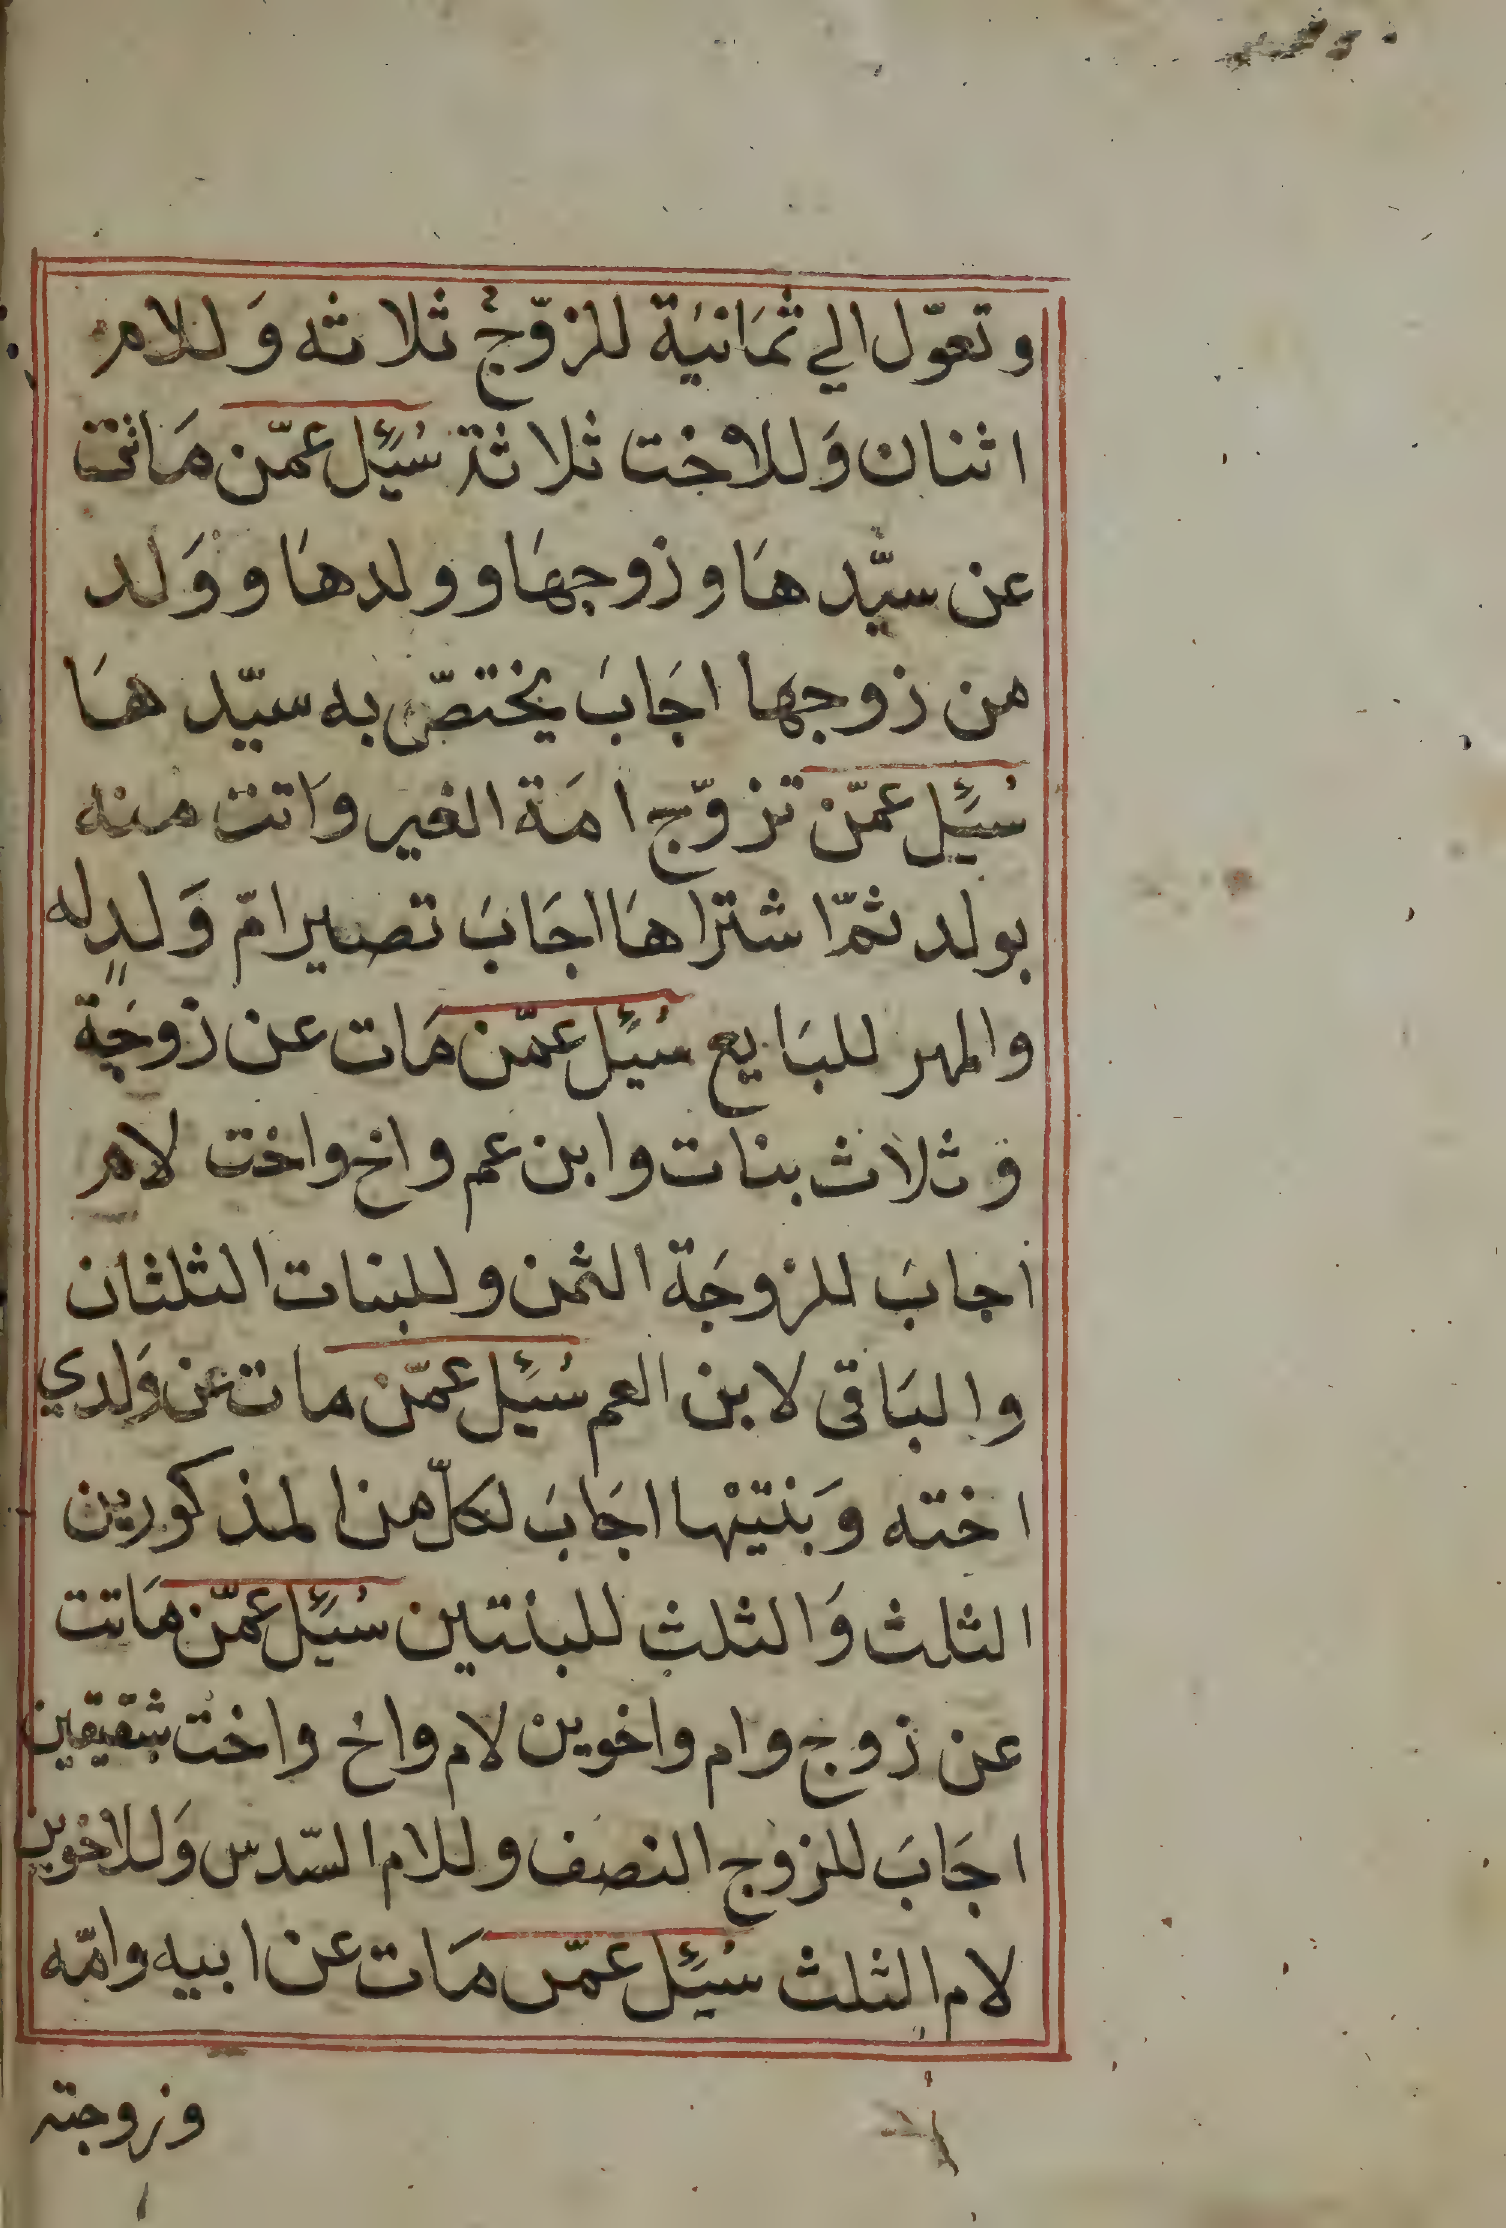 وتعوّل الي ثمَانيَة للزوّجْ ثلاثه وَللام
اثنان وَللاخت ثلاثة سُئِل عمّن مَاتت
عن سيّدهَا وزوجهَا وولدهَا ووَلد
من زوجها اجَابَ يختصّ به سيّدهَا
سُئِل عمّن تزوّج امَة الغير وَاتت منه
بولد ثمّ اشتراهَا اجَابَ تصير امّ وَلدٍ له
والمهر للبَايع سُئِل عمّن مَات عن زوجَة
وثلاث بنات وابن عم واخ واخت لام
اجابَ للزوجَة الثمن وللبنات الثلثان
والبَاقى لابن العم سُئِل عمّن مات عن وَلدي
اخته وَبنتيْها اجَابَ لكلّ من المذكورين
الثلث وَالثلث للبنتين سُئِل عمّن مَاتت
عن زوج وام واخوين لام واخ واخت شقيقين
اجَابَ للزوج النصف وللام السّدس وَللاخوين
لام الثلث سُئِل عمّن مَات عن ابيه وامّه
وزوجته